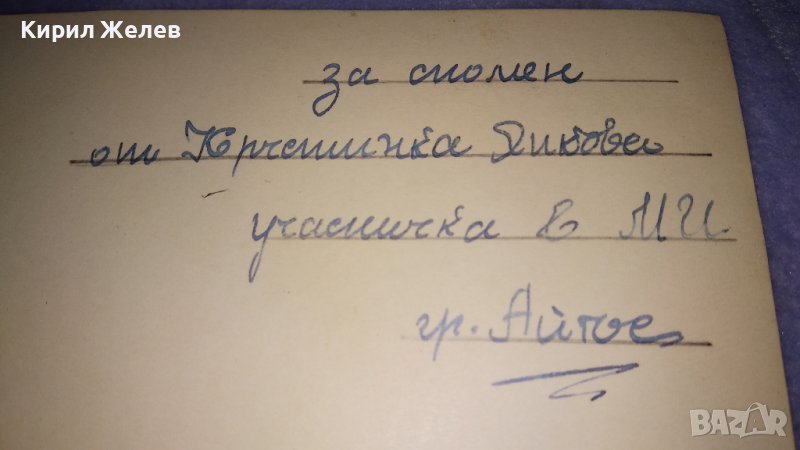 Кирил Желев
за спомен
от Кръстинка Янкова
участничка в МИ.
гр. Айтос
BAZAR